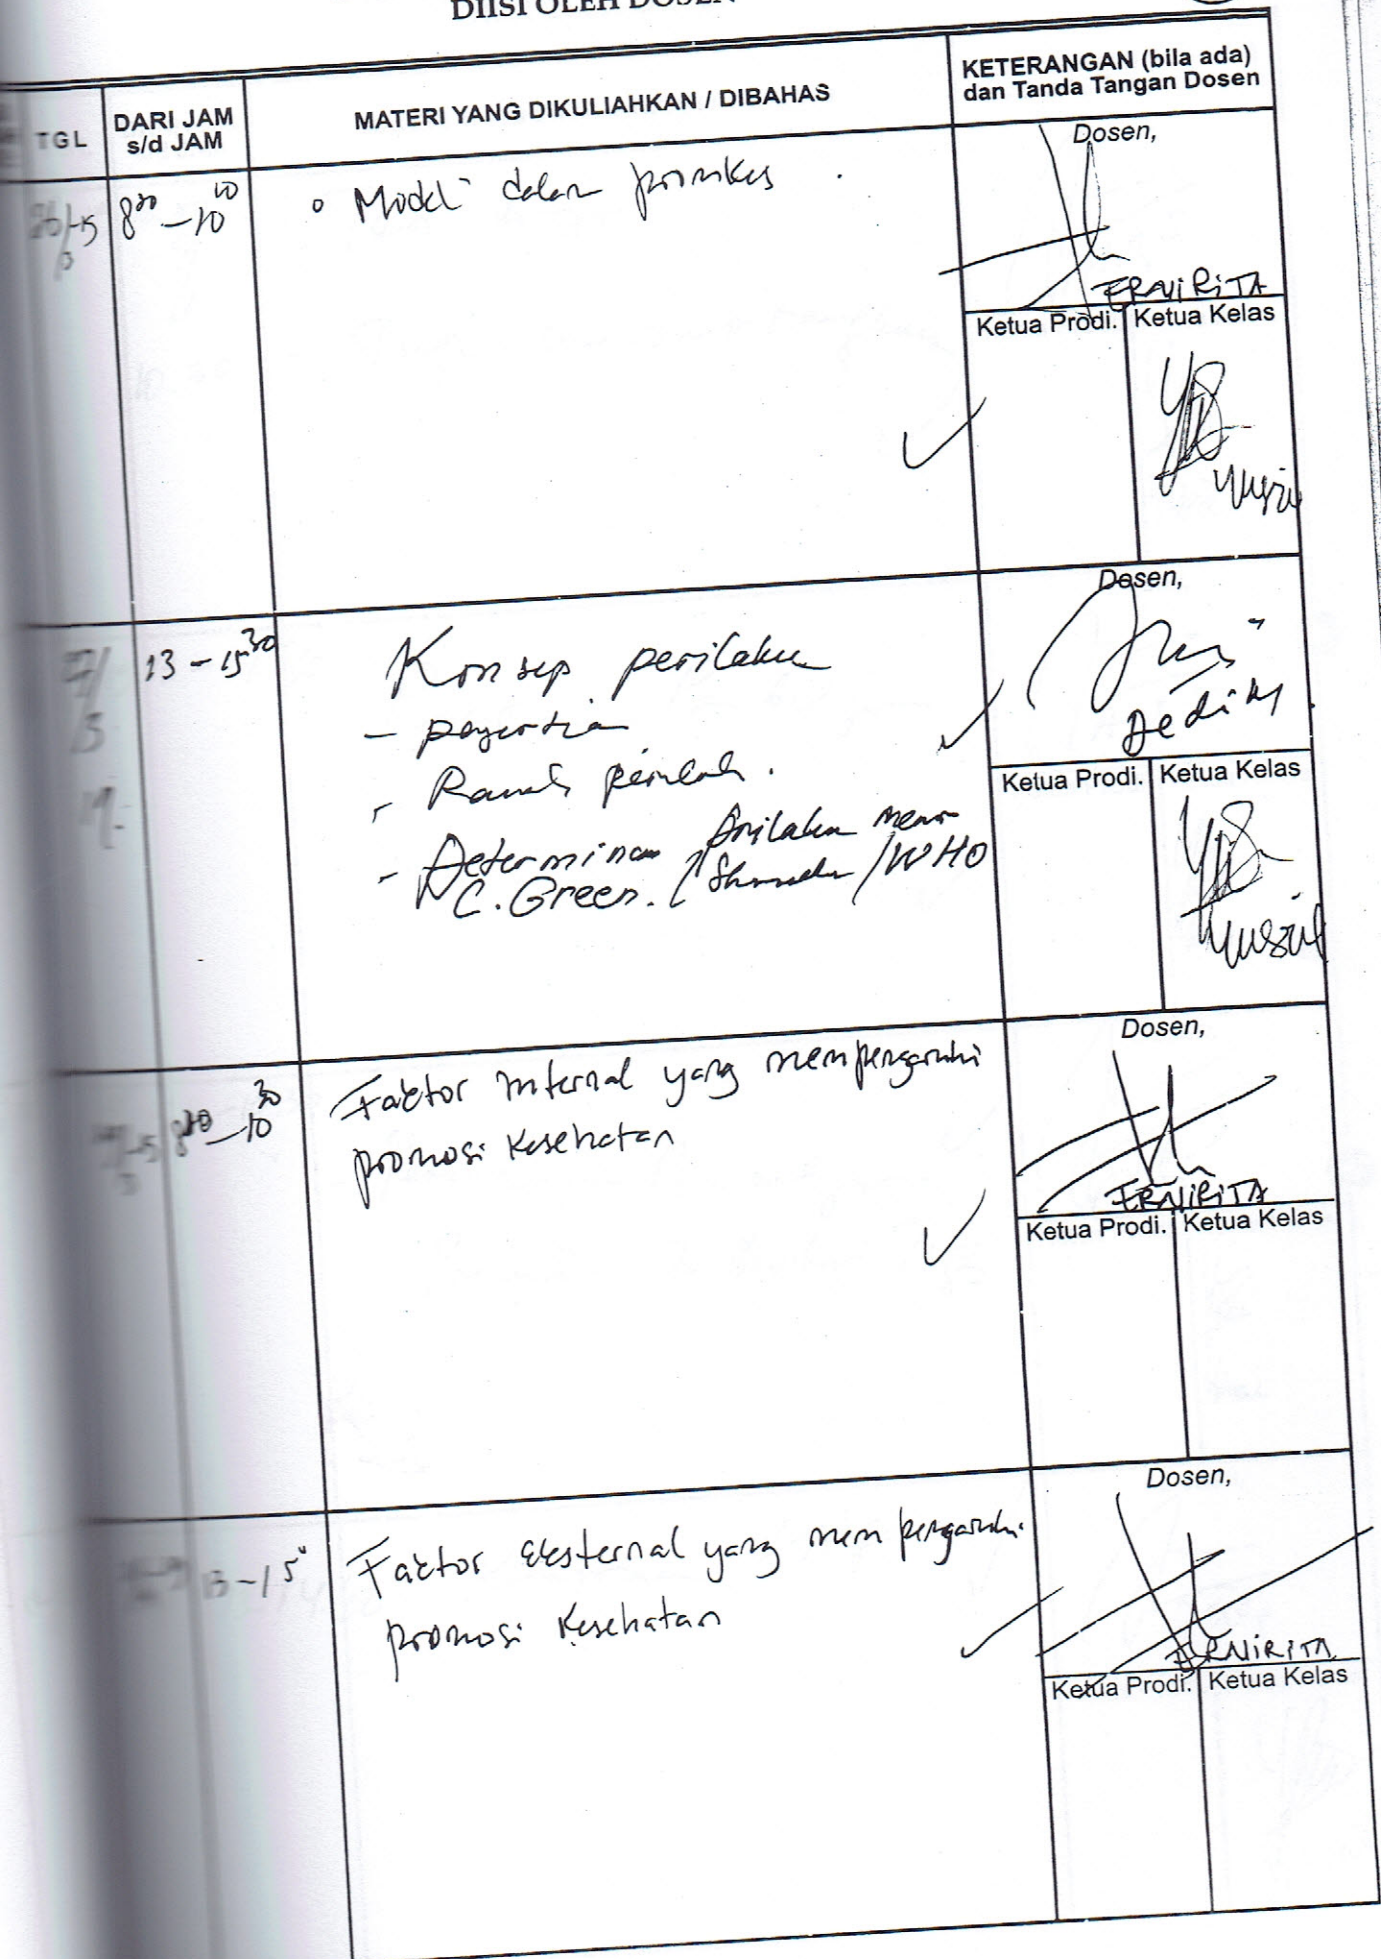 DIISI OLEH DOSEN
TGL
DARI JAM
s/d JAM
MATERI YANG DIKULIAHKAN / DIBAHAS
KETERANGAN (bila ada)
dan Tanda Tangan Dosen
8³⁰ – 10
• Model dalam promkes
Dosen,
ERNIRITA
Ketua Prodi.
Ketua Kelas
13 – 15³⁰
Konsep perilaku
- pengertian
- Ranah perilaku.
- Determinan Perilaku
C. Green. / WHO
Dosen,
Dedi M
Ketua Prodi.
Ketua Kelas
8³⁰ – 10³⁰
Faktor Internal yang mempengaruhi
promosi Kesehatan
Dosen,
ERNIRITA
Ketua Prodi.
Ketua Kelas
13 – 15
Faktor Eksternal yang mempengaruhi
promosi Kesehatan
Dosen,
ERNIRITA
Ketua Prodi.
Ketua Kelas